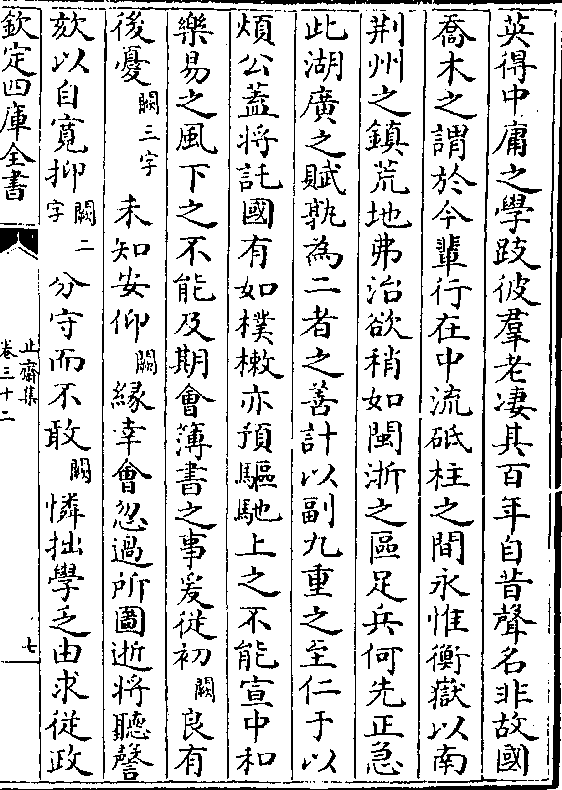 英得中庸之學跂彼羣老凄其百年自昔聲名非故國
喬木之謂於今輩行在中流砥柱之間永惟衡嶽以南
荆州之鎮荒地弗治欲稍如閩浙之區足兵何先正急
此湖廣之賦孰為二者之善計以副九重之至仁于以
煩公蓋将託國有如樸樕亦預驅馳上之不能宣中和
樂易之風下之不能及期會簿書之事爰従初闕良有
後憂闕三字未知安仰闕縁幸會忽過所圖逝將聽謦
欬以自寛抑闕二字分守而不敢闕憐拙學乏由求從政
欽定四庫全書
止齋集
卷三十二
七